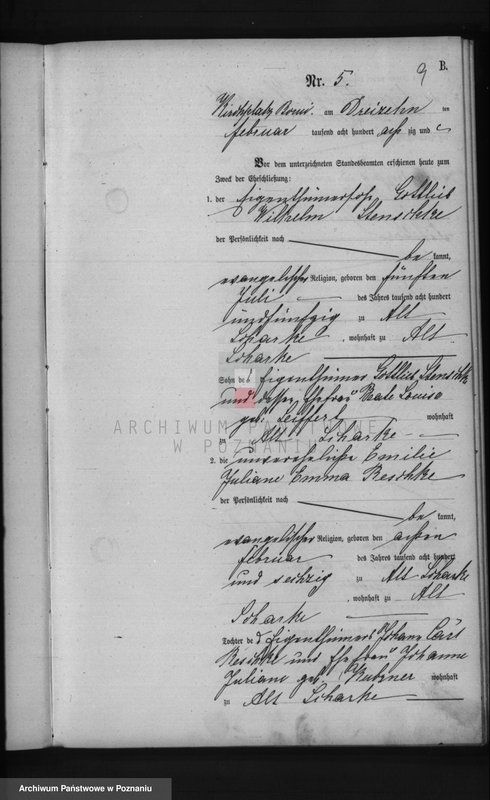 9 B.
Nr. 5.
Kirchplatz Borui. am Dreizehn ten
Februar tausend acht hundert acht zig und
Vor dem unterzeichneten Standesbeamten erschienen heute zum
Zweck der Eheschließung:
1. der Eigenthümersohn Gottlieb
Wilhelm Stenschke
der Persönlichkeit nach
be kannt,
evangelischer Religion, geboren den fünften
Juli des Jahres tausend acht hundert
undfünfzig zu Alt
Scharke, wohnhaft zu Alt
Scharke
Sohn des Eigenthümer Gottlieb Stenschke
und dessen Ehefrau Beate Louise
geb. Seiffert wohnhaft
zu Alt Scharke
2. die unverehelichte Emilie
Juliane Emma Reschke
der Persönlichkeit nach
be kannt,
evangelischer Religion, geboren den achten
Februar des Jahres tausend acht hundert
und sechzig zu Alt Scharke
, wohnhaft zu Alt
Scharke
Tochter des Eigenthümers Johann Carl
Reschke und Ehefrau Johanne
Juliane geb. wohnhaft
zu Alt Scharke
ARCHIWUM PAŃSTWOWE
W POZNANIU
Archiwum Państwowe w Poznaniu